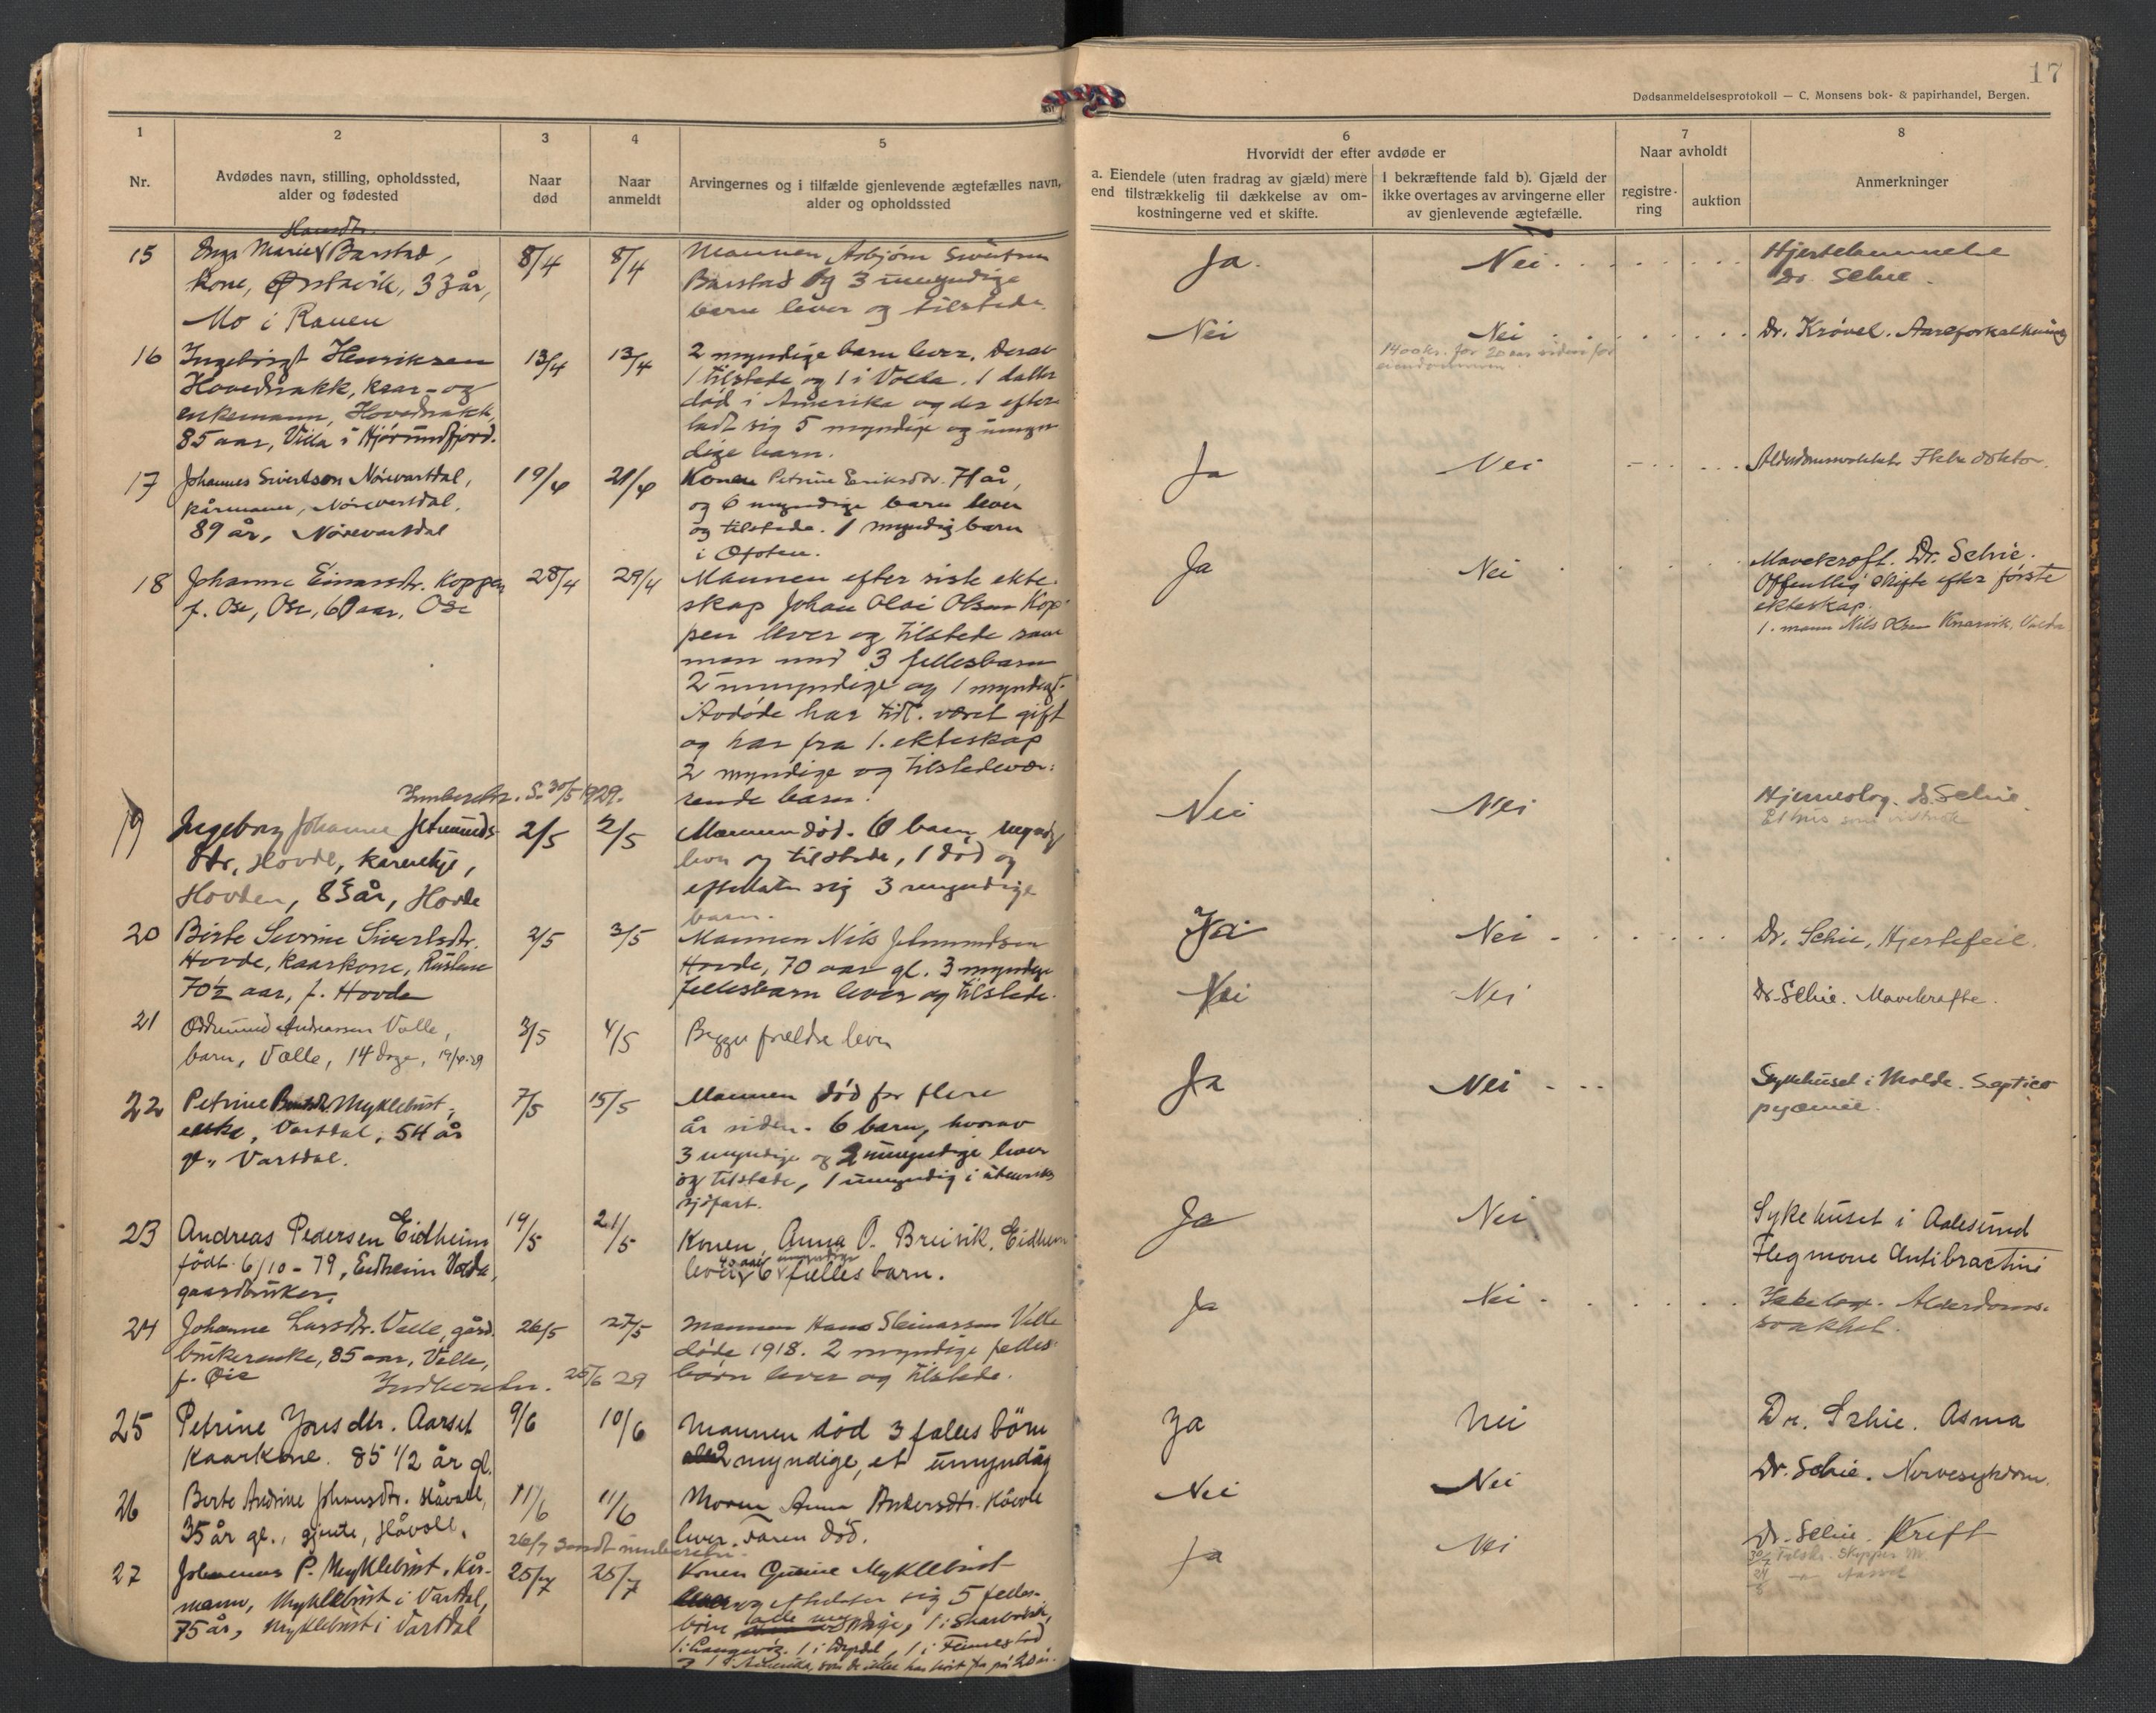 17
Dødsanmeldelsesprotokoll — C. Monsens bok- & papirhandel, Bergen.
1
2
3
4
5
6
7
8
Nr.
Avdødes navn, stilling, opholdssted,
alder og fødested
Naar
død
Naar
anmeldt
Arvingernes og i tilfælde gjenlevende ægtefælles navn,
alder og opholdssted
Hvorvidt der efter avdøde er
a. Eiendele (uten fradrag av gjæld) mere
end tilstrækkelig til dækkelse av om-
kostningerne ved et skifte.
I bekræftende fald b). Gjæld der
ikke overtages av arvingerne eller
av gjenlevende ægtefælle.
Naar avholdt
registre-
ring
auktion
Anmerkninger
Hansdtr.
15
Inga Marie Barstad,
kone, Ørstavik, 33 år,
Mo i Ranen
8/4
8/4
Mannen Asbjørn Sivertsen
Barstad og 3 umyndige
barn lever og tilstede.
Ja.
Nei
Hjertelammelse
Dr. Schie.
16
Ingebrigt Henriksen
Hovedvakk, kaar- og
enkemann, Hovedvakk,
85 aar, Villa i Hjørundfjord.
13/4
13/4
2 myndige barn lever, derav
1 tilstede og 1 i Volda. 1 datter
død i Amerika og der efter-
ladt sig 5 myndige og umyn
dige barn.
Nei
Nei
1400 kr. for 20 aar siden for
eiendommen.
Dr. Krøvel. Aareforkalkning
17
Johannes Sivertson Nørevartdal,
kårmann, Nørevartdal,
89 år, Nørevartdal
19/4
21/4
Konen Petrine Eriksdtr. 71 år,
og 6 myndige barn lever
og tilstede. 1 myndig barn
i Ofoten.
Ja
Nei
Alderdomssvakhet Ikke doktor.
18
Johanne Einarsdtr. Koppen
f. Ose, Ose, 60 aar, Ose
28/4
29/4
Mannen efter siste ekte-
skap Johan Olai Olsen Kop-
pen lever og tilstede sam
men med 3 fellesbarn
2 umyndige og 1 myndigt.
Avdøde har tidl. været gift
og har fra 1. ekteskap
2 myndige og tilstedevæ-
rende barn.
Ja
Nei
Mavekræft. Dr. Schie.
Offentlig skifte efter første
ekteskap.
1. mann Nils Olsen Knarvik, Volda
Innberetn. S. 30/5 1929.
19
Ingeborg Johanne Jetmunds-
dtr, Hovde, kårenkje,
Hovden, 83 år, Hovde
2/5
2/5
Mannen død. 6 barn myndig
lever og tilstede, 1 død og
efterlater sig 3 myndige
barn.
Nei
Nei
Hjerneslag. Dr. Schie.
20
Birte Severine Sivertsdtr.
Hovde, kaarkone,
70½ aar, f. Hovde
2/5
3/5
Mannen Nils Jetmundsen
Hovde, 70 aar gl. 3 myndige
fellesbarn lever og tilstede.
Nei
Dr. Schie, Hjertefeil.
21
Oddmund Andreassen Valle,
barn, Valle, 14 dage, 19/4-29
3/5
4/5
Begge foreldre lever
Nei
Nei
Dr. Schie. Mavekrafte.
22
Petrine Myklebust,
enke, Vartdal, 54 år
gl., Vartdal.
7/5
15/5
Mannen død for flere
år siden. 6 barn, hvorav
3 myndige og 2 umyndige lever
og tilstede, 1 umyndig i utenriks
sjøfart.
Ja
Nei
Sykehuset i Molde. Septico
pyæmie.
23
Andreas Pedersen Eidheim
født 6/10 - 79, Eidheim Volda,
gaardbruker.
19/5
21/5
Konen, Anna O. Breivik, Eidheim
40 aar umyndige
lever 6 felles barn.
Ja
Nei
Sykehuset i Aalesund
Flegmone Antibractini
24
Johanne Larsdtr. Velle, gård-
brukerenke, 85 aar, Velle,
f. Øie
26/5
27/5
Mannen Hans Steinarssen Velle
døde 1918. 2 myndige felles-
børn lever og tilstede.
Ja
Nei
Alderdoms-
svakhet.
Indberetn. 25/6 29
25
Petrine Jonsdtr. Aarset
Kaarkone. 85 1/2 år gl.
9/6
10/6
Mannen død 3 felles börn
2 myndige, et umyndig
Ja
Nei
Dr. Schie. Asma
26
Berte Andrine Johansdtr. Håvoll,
35 år gl., gjente, Håvoll.
11/6
11/6
Moren Anna Andersdtr. Håvoll
lever. Faren død.
Nei
Nei
Dr. Schie. Nervesykdom.
26/7 Sendt innberetn.
27
Johannes P. Myklebust, Kår-
mann, Myklebust i Vartdal,
75 år, Myklebust i Vartdal
25/7
25/7
Konen Gurine Myklebust
og efterlater sig 5 felles-
börn alle myndige,
1 i Amerika, som de ikke har hørt fra på 20 år.
Ja
Nei
Dr. Schie. Kreft